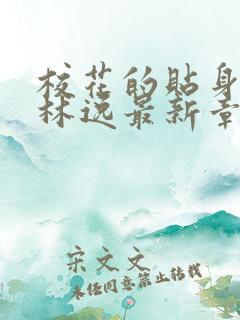 校花的贴身
林逸最新章
宋文文
未经同意禁止转载